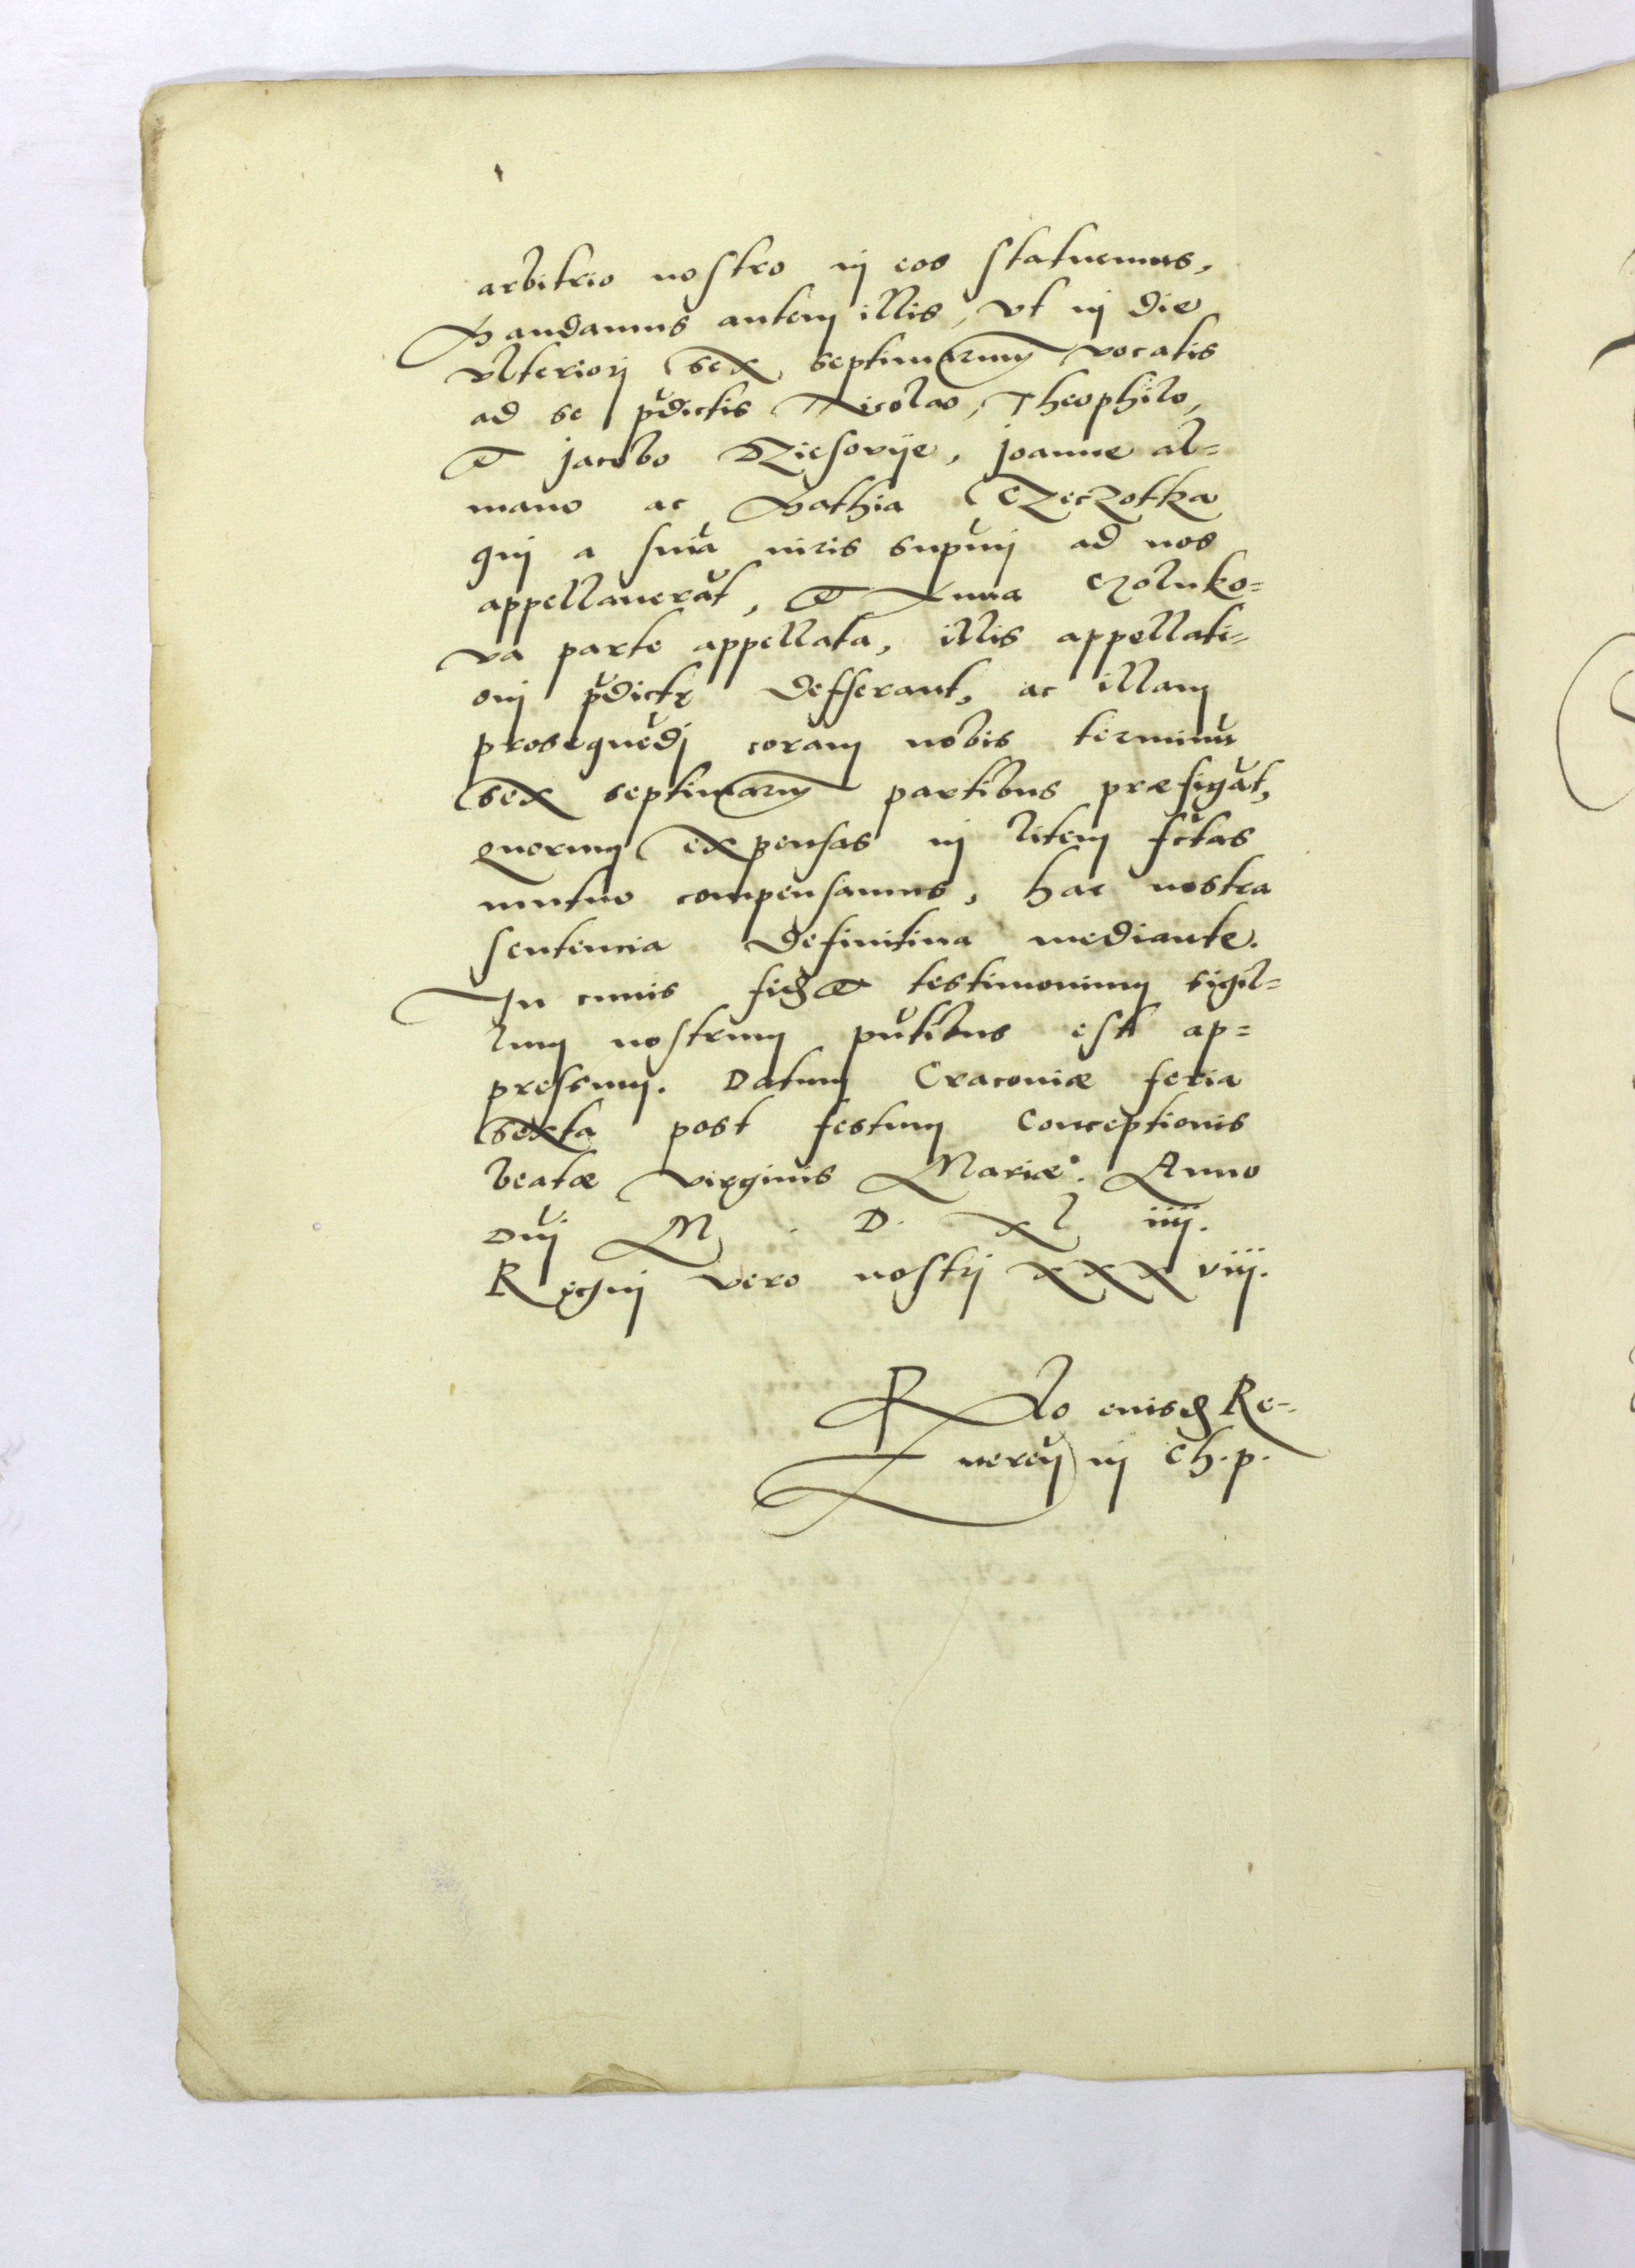 arbitrio nostro in eos statuemus,
Mandamus autem illis, vt in die
vlteriori sex septimarum vocatis
ad se p̃dictis Nicolao, Theophilo,
et jacobo Rziesovÿe, joanne al=
mano ac Mathia Czeczotka
qui a sñia viris sup̃ni ad nos
appellauerãt, et Anna Czoluko=
va parte appellata, illis appellati=
oni p̃dictę defferant, ac illam
prosequẽdi coram nobis terminũ
sex septimarum partibus præfigãt,
quorum expensas in litem fc̃tas
mutuo compensamus, hac nostra
sentencia definitiua mediante.
In cuius fidẽ et testimonium sigil=
lum nostrum pñtibus est ap=
pressum. Datum Cracouiæ feria
sexta post festum Conceptionis
beatæ virginis Mariæ. Anno
Dñi M. D. xl iiij.
Regni vero nostri xxxviij.
Re=
in Ch. p.